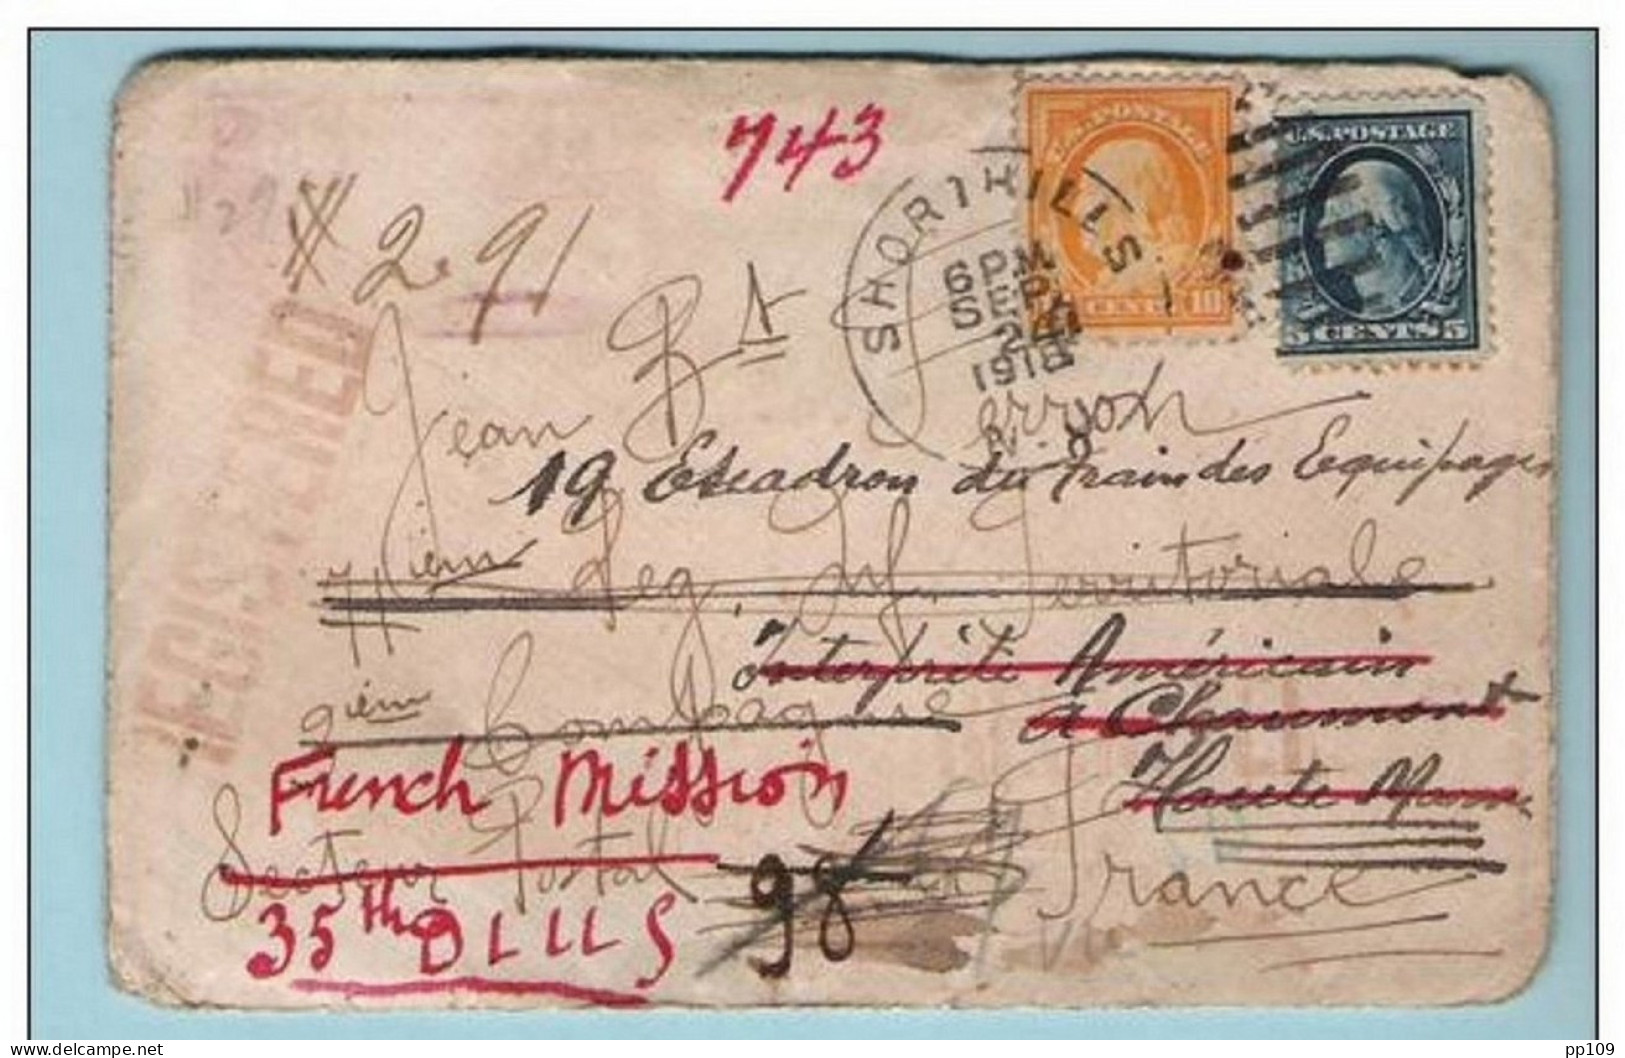 743
U.S. POSTAGE
CENTS 10
U.S. POSTAGE
5 CENTS 5
# 291
SHORT HILLS
6 PM
SEP
24
1918
N.J.
REGISTERED
Jean
19 Escadron du Train des Equipages
ième Reg. Inf. Territoriale
Interprète Américain
9ième Compagnie
a Chaumont
Haute Marne
French Mission
Secteur Postal 98
France
35th D U S
pp109